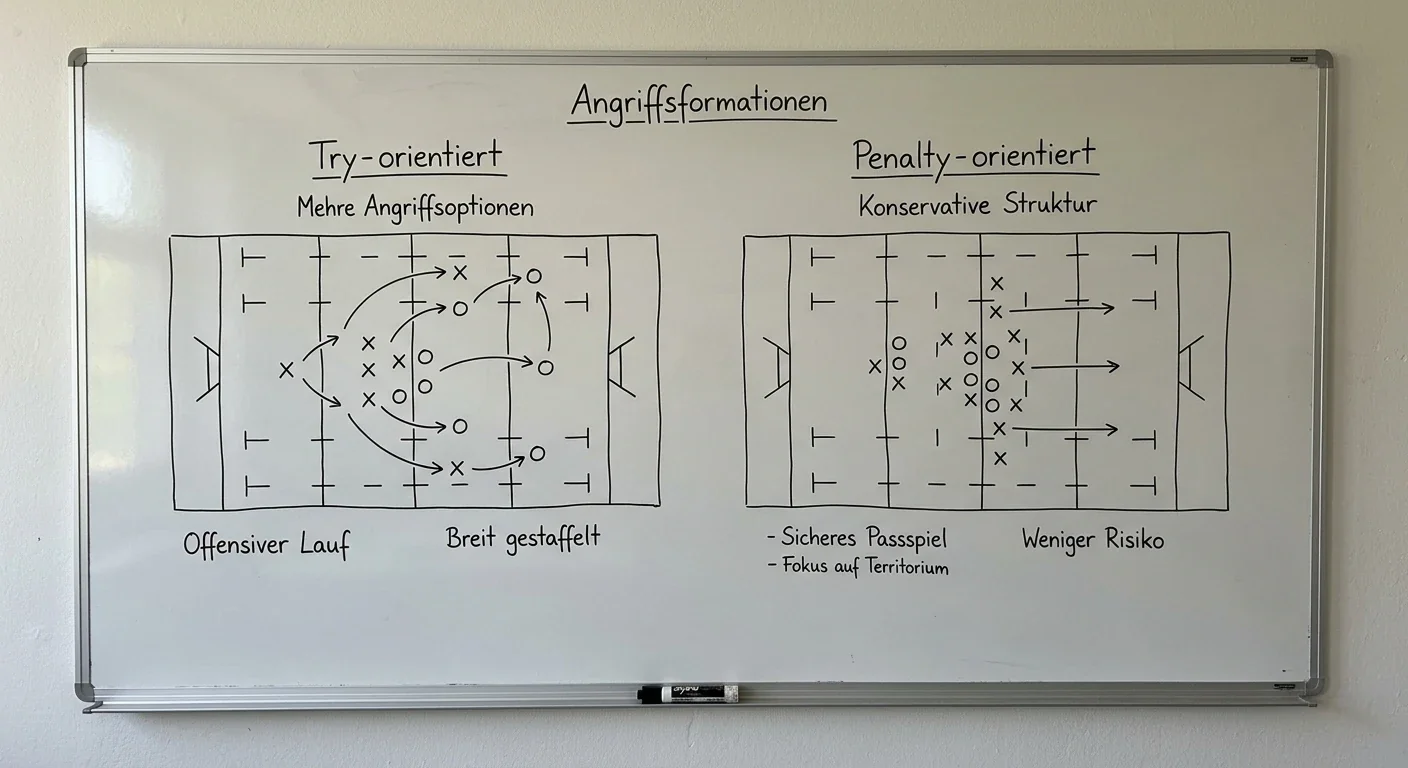 Angriffsformationen
Try-orientiert
Mehre Angriffsoptionen
Offensiver Lauf
Breit gestaffelt
Penalty-orientiert
Konservative Struktur
- Sicheres Passspiel
- Fokus auf Territorium
Weniger Risiko